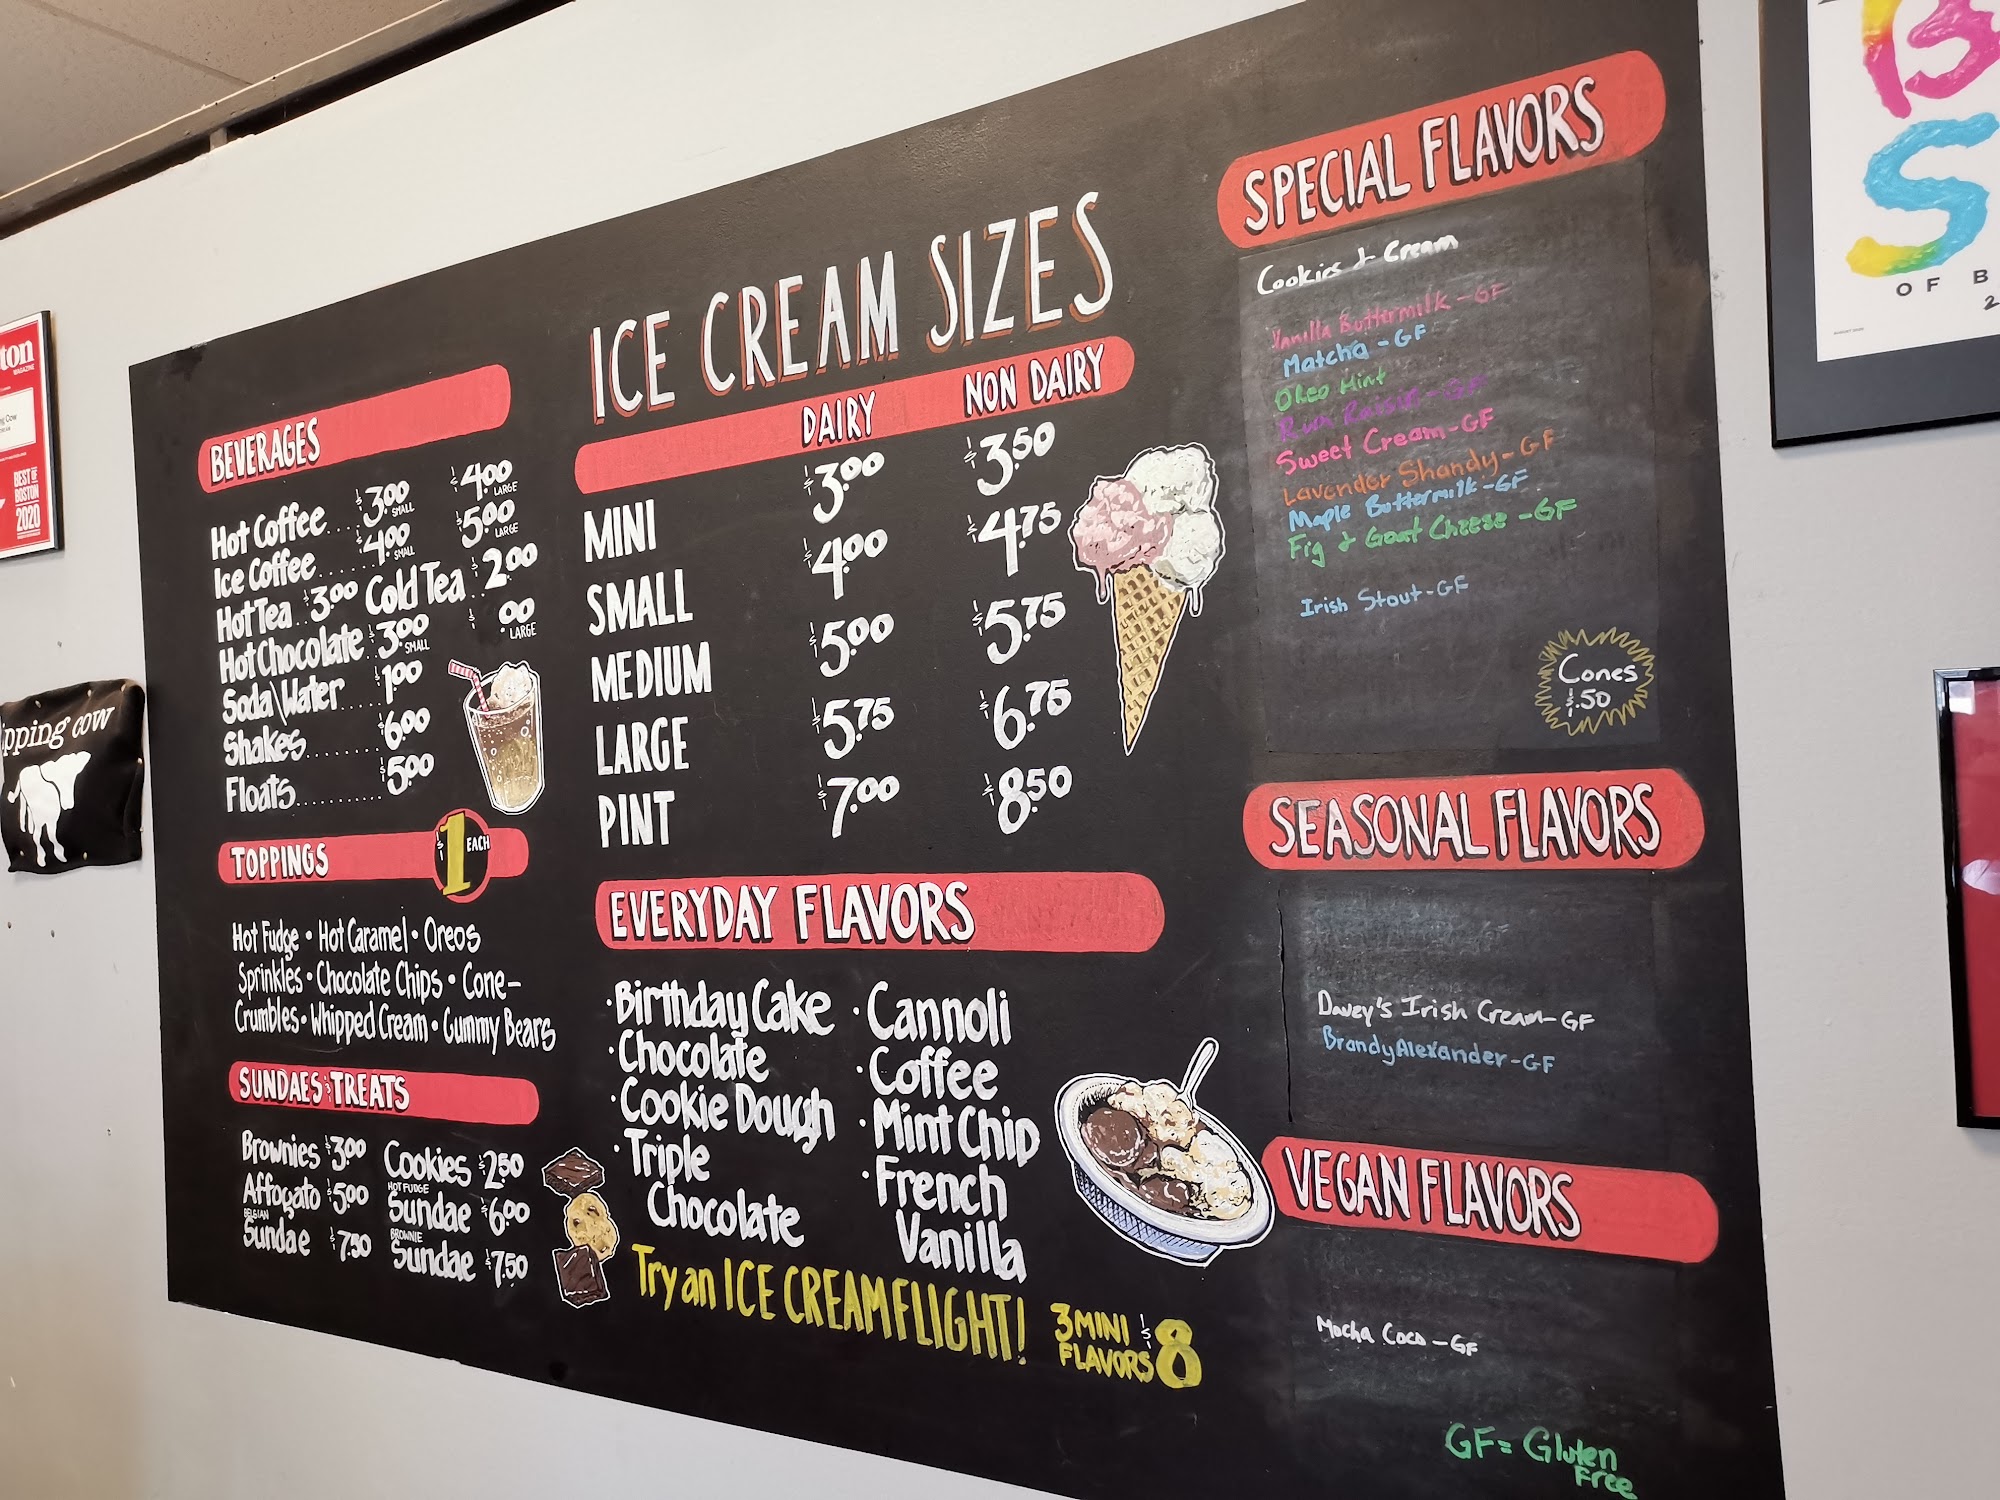 BEVERAGES
Hot Coffee.. $3.00 SMALL $4.00 LARGE
Ice Coffee..... $4.00 SMALL $5.00 LARGE
Hot Tea.. $3.00 Cold Tea $2.00
Hot Chocolate.. $3.00 SMALL $ .00 LARGE
Soda\Water..... $1.00
Shakes....... $6.00
Floats.......... $5.00
TOPPINGS $1 EACH
Hot Fudge • Hot Caramel • Oreos
Sprinkles • Chocolate Chips • Cone-
Crumbles • Whipped Cream • Gummy Bears
SUNDAES & TREATS
Brownies $3.00 Cookies $2.50
Affogato $5.00 HOT FUDGE Sundae $6.00
BELGIAN Sundae $7.50 BROWNIE Sundae $7.50
ICE CREAM SIZES
DAIRY NON DAIRY
MINI $3.00 $3.50
SMALL $4.00 $4.75
MEDIUM $5.00 $5.75
LARGE $5.75 $6.75
PINT $7.00 $8.50
EVERYDAY FLAVORS
• Birthday Cake • Cannoli
• Chocolate • Coffee
• Cookie Dough • Mint Chip
• Triple Chocolate • French Vanilla
Try an ICE CREAM FLIGHT! 3 MINI FLAVORS $8
SPECIAL FLAVORS
Cookies & Cream
Vanilla Buttermilk - GF
Matcha - GF
Oreo Mint
Rum Raisin - GF
Sweet Cream - GF
Lavender Shandy - GF
Maple Buttermilk - GF
Fig & Goat Cheese - GF
Irish Stout - GF
Cones
$.50
SEASONAL FLAVORS
Davey's Irish Cream - GF
Brandy Alexander - GF
VEGAN FLAVORS
Mocha Coco - GF
GF = Gluten
Free
ton
MAGAZINE
BEST OF
BOSTON
2020
pping cow
B
S
OF B